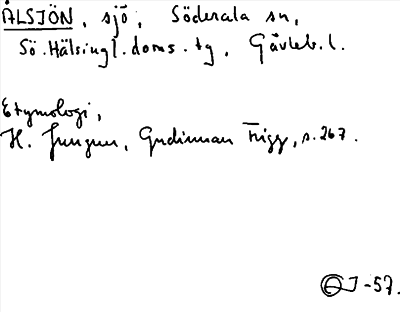 ÅLSJÖN, sjö, Söderala sn,
Sö. Hälsingl. doms. tg, Gävleb. l.
Etymologi,
H. Jungner, Gudinnan Frigg, s. 267.
J-57.